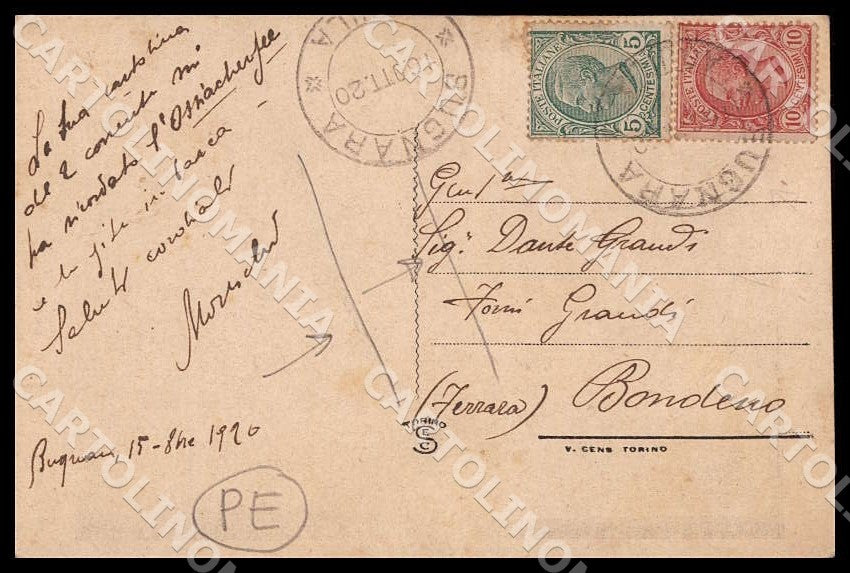 La tua cartolina
de 2 corrente mi
ha ricordato l'Ossiacherfee
e le gite in barca -
Saluti cordiali
Bugnara, 15-8bre 1920
PE
BUGNARA
* AQUILA *
16 OTT. 20
POSTE ITALIANE
5 CENTESIMI 5
POSTE ITALIANE
10 CENTESIMI 10
BUGNARA
Sig. Dante Grandi
Torri Grandi
(Ferrara) Bondeno
TORINO
V. CENS TORINO
CARTOLINOMANIA